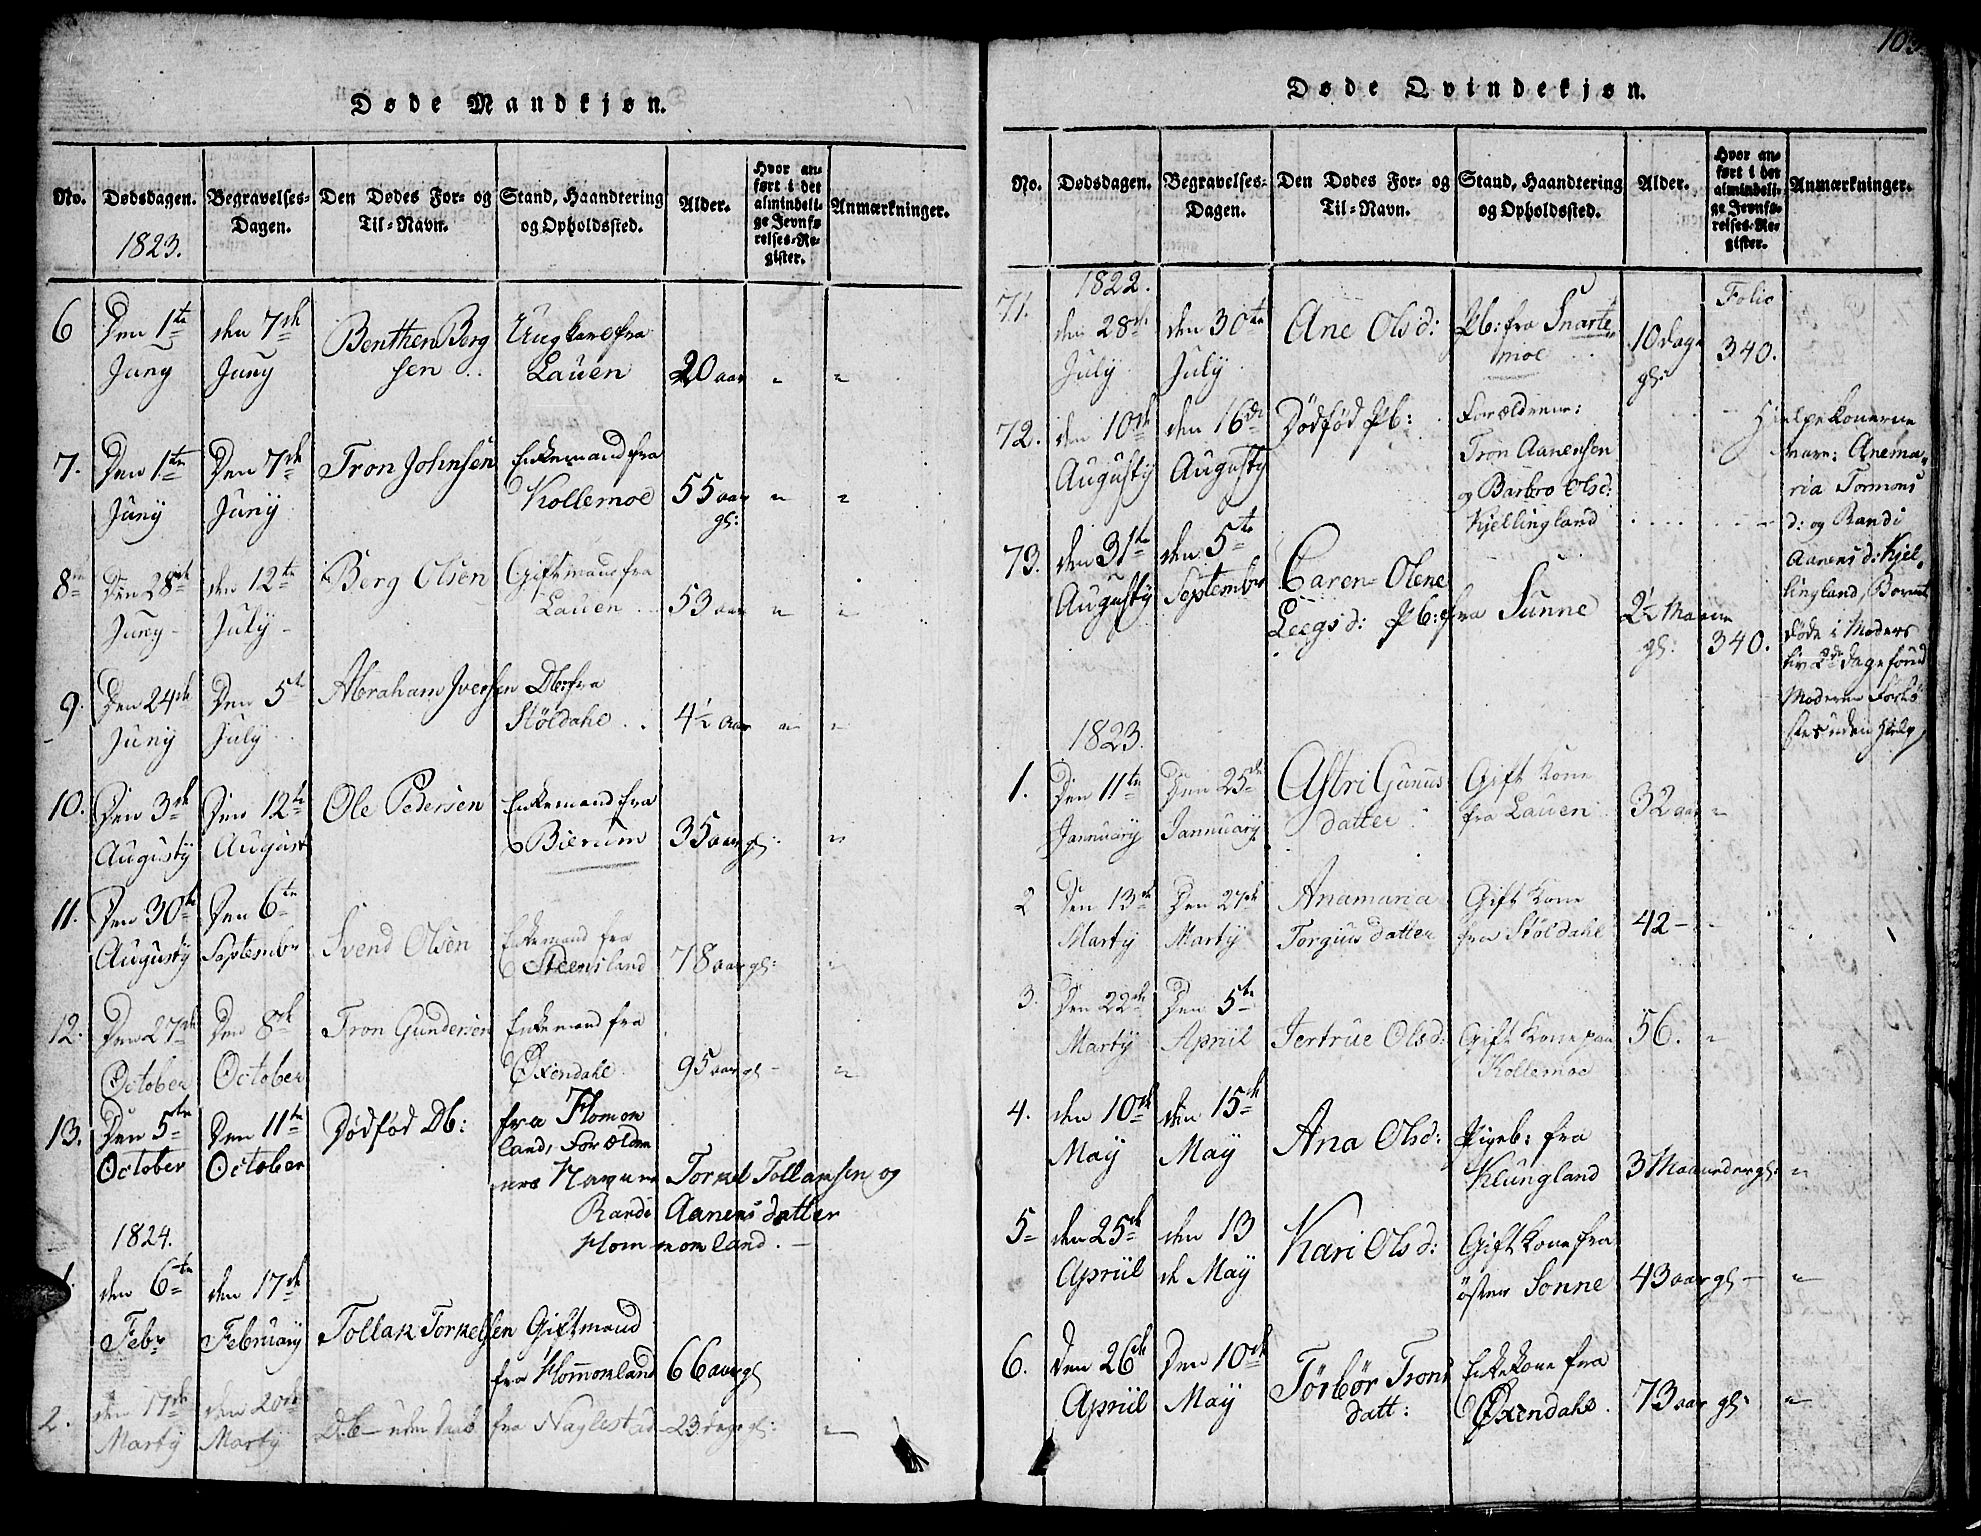 Døde Mandkjøn.
No. Dødsdagen. Begravelses-Dagen. Den Dødes For- og Til-Navn. Stand, Haandtering og Opholdssted. Alder. Hvor anført i det almindelige Jevnførelses-Register. Anmærkninger.
1823.
6 Den 1te Juny den 7de Juny Benthen Bergsen Ungkarl fra Lauen 20 aar " "
7. Den 1te Juny Den 7de Juny Tron Johnsen Enkemand fra Kollemoe 55 aar gl: " "
8 Den 28de Juny den 12te July Berg Olsen Giftmand fra Lauen 53 aar " "
9. Den 24de Juny Den 5te July Abraham Iversen Db: fra Stöldahl 4½ aar " "
10. Den 3de Augusty Den 12te August Ole Pedersen Enkemand fra Bierum 35 aar gl: "
11. Den 30te Augusty Den 6te Septembr Svend Olsen Enkemand fra Steensland 78 aar gl: "
12. Den 27de October Den 8de October Tron Gundersen Enkemand fra Øxendahl 95 aar gl "
13. Den 5te October Den 11te October Dødfød Db: fra Homonland, Forældrenes Navne Torkel Tollaksen og Randi Aanensdatter Hommomland.
1824.
1. den 6te Febr den 17de February Tollak Torkelsen Giftmand fra Hommonland 66 aar gl
2. den 17de Marty den 20de Marty Db uden daab fra Naglestad 23 dage gl: "
Døde Qvindekjøn.
103
No. Dødsdagen. Begravelses-Dagen. Den Dødes For- og Til-Navn. Stand, Haandtering og Opholdssted. Alder. Hvor anført i det almindelige Jevnførelses-Register. Anmærkninger.
1822.
71. den 28de July den 30te July Ane Olsd: Pb: fra Snartemoe 10 dage gl: Folio 340.
72. den 10de Augusty den 16de Augusty Dödföd Pb: Forældrene: Tron Aanensen og Barbro Olsd: Kjellingland
Hjelpekonerne
vare: Anema-
ria Tormons
d: og Randi
Aanens d: Kjel-
lingland, Barnet
døde i Moders
liv 2de dage
Moderen
uden Hjelp
73. den 31te Augusty den 5te September Caren Olene Leegsd: Pb: fra Sunne 2½ Maane gl: 340.
1823.
1. Den 11te Jannuary Den 25de Jannuary Astri Gunusdatter Gift Kone fra Lauen 32 aar "
2 Den 13de Marty Den 27de Marty Anamaria Torgiusdatter Gift Kone fra Stöldahl 42 - "
3. Den 22de Marty Den 5te Apriil Jertrue Olsd: Gift Kone paa Kollemoe 56. "
4. den 10de May den 15de May Ana Olsd: Pigeb: fra Klungland 3 Maaneder gl: "
5 den 25de Apriil den 13de May Kari Olsd: Gift Kone fra öster Sonne 43 aar gl - "
6. Den 26de Apriil Den 10de May Törbör Trons datt: Enkekone fra Øxendahl. 73 aar gl. "